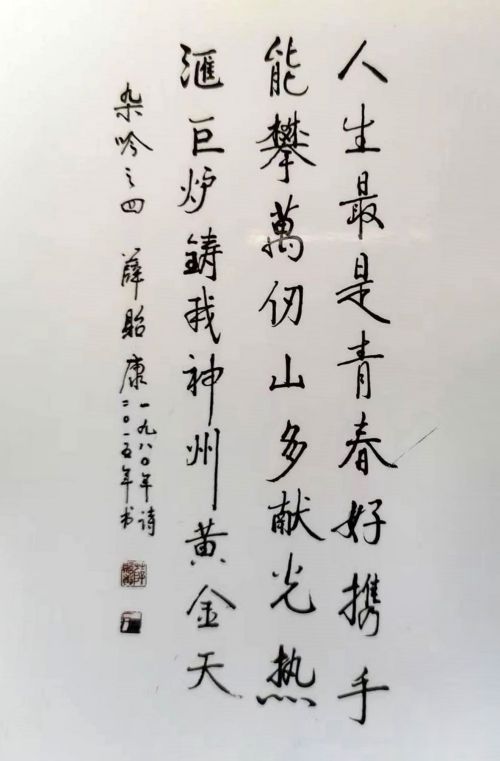 人生最是青春好携手
能攀萬仞山多献光热
滙巨炉鑄我神州黄金天
杂吟之四 薛贻康
一九八〇年诗
二〇一五年书